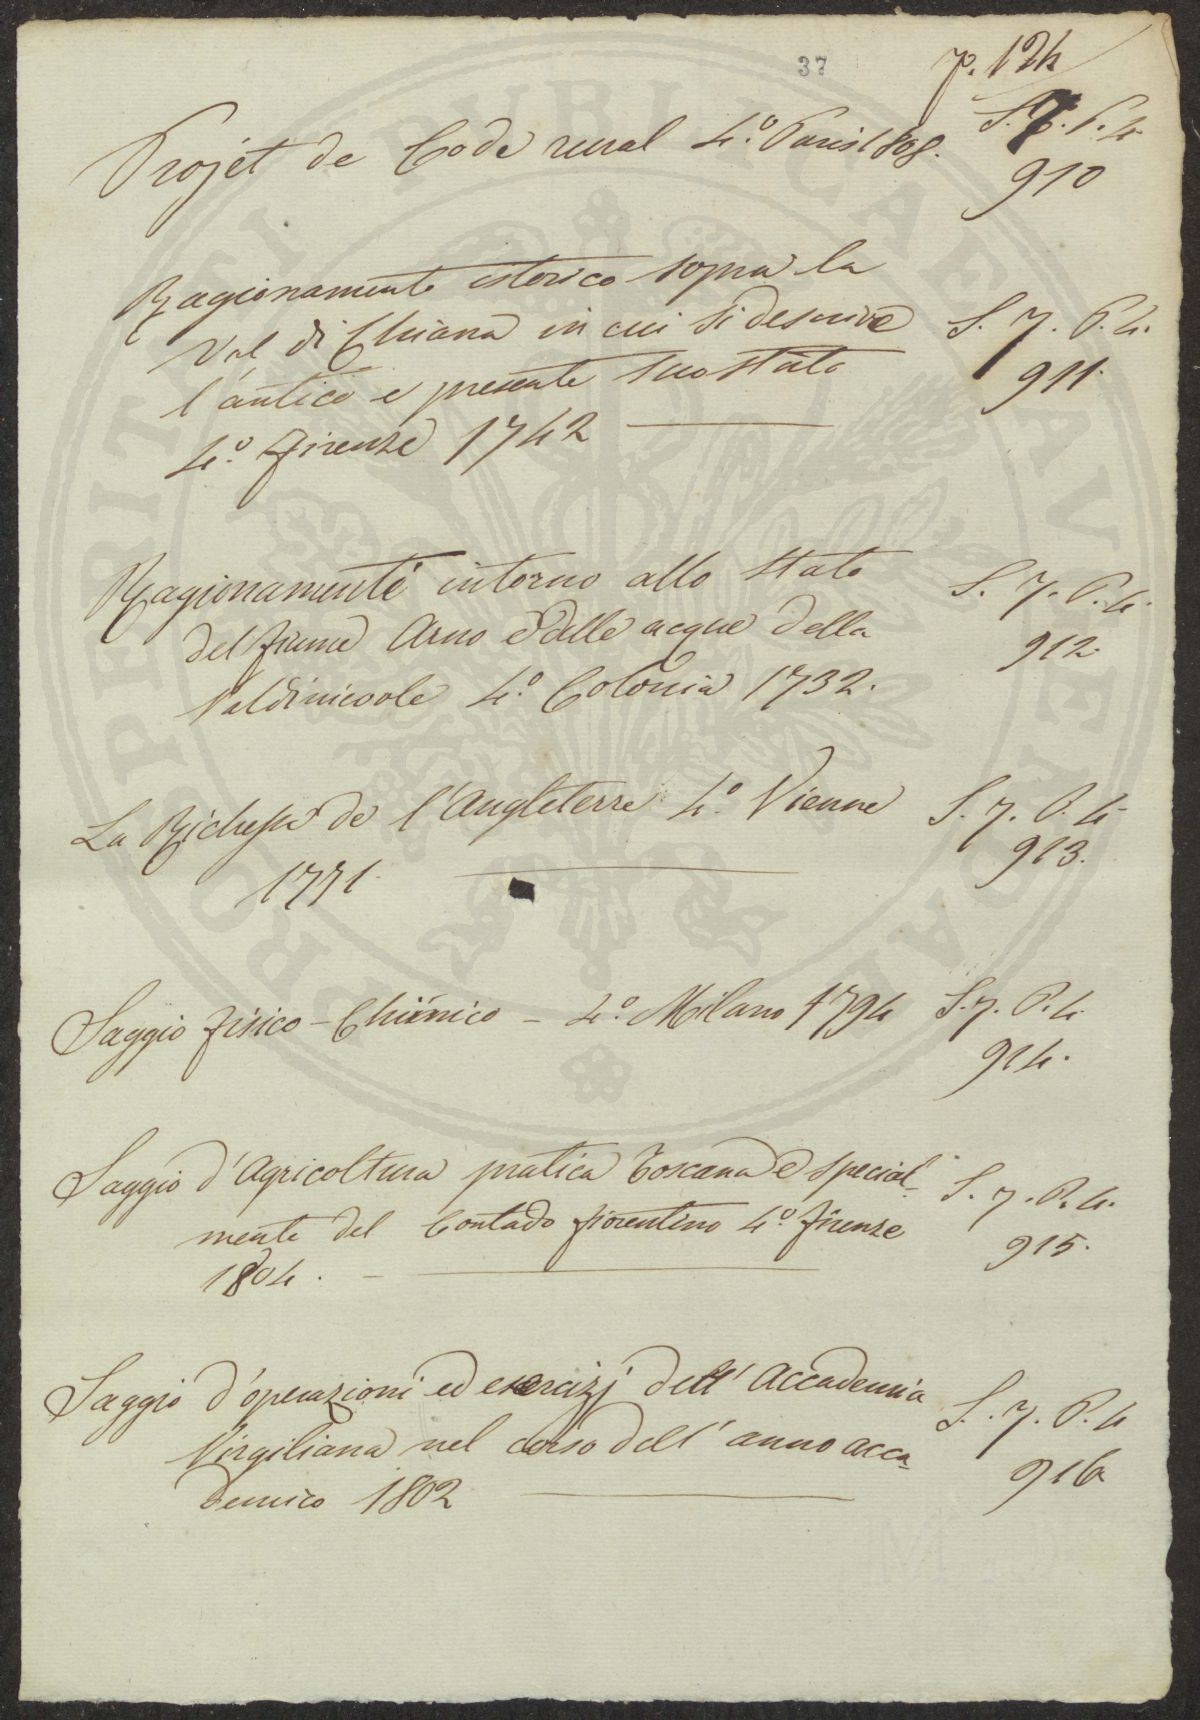 37
p. 124
Projet de Code rural 4.º Paris 1808.
S. 7. P. 4.
910
Ragionamento istorico sopra la
Val di Chiana in cui si descrive
l'antico e presente suo stato
4.º Firenze 1742
S. 7. P. 4.
911.
Ragionamenti intorno allo stato
del fiume Arno e delle acque della
Valdinievole 4.º Colonia 1732.
S. 7. P. 4.
912.
La Richesse de l'Angleterre 4.º Vienne
1771.
S. 7. P. 4
913.
Saggio fisico-Chimico - 4.º Milano 1794
S. 7. P. 4.
914.
Saggio d'Agricoltura pratica Toscana e special-
mente del Contado fiorentino 4.º firenze
1804. -
S. 7. P. 4.
915.
Saggio d'operazioni ed esercizj dell'Accademia
Virgiliana nel corso dell'anno acca-
demico 1802
S. 7. P. 4
916
PROSPERITATI PUBLICAE AUGENDAE